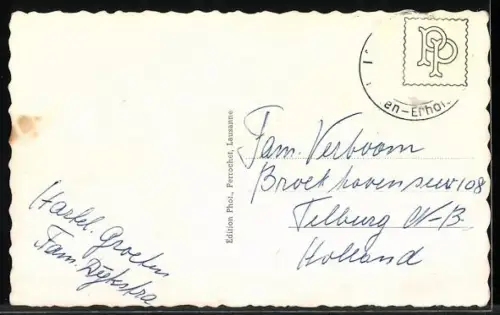 Hartel. Groeten
Fam. Dijkstra
Edition Phot. Perrochet, Lausanne
PP
en-Erhol
Fam. Verboom
Broekhovenseweg 108
Tilburg N-B.
Holland